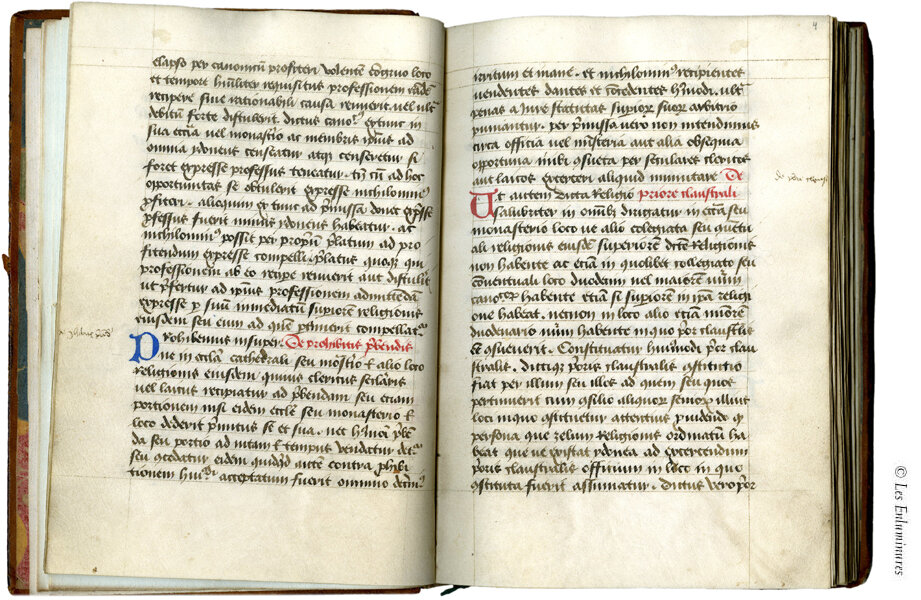 elapso per canonicum profiteri volente Congruo loco
et tempore hu͞iliter requisitus professionem eiusde͞
recipere sine rationabili causa renuerit vel ult͞
debitum forte distulerit. dictus cano͞ extunc in
sua eccl͞ia vel monast͞io ac membris ip͞ius ad
omnia ydoneus censeatur atq͞ censeretur si
foret expresse professus teneatur. t͞n cu͞ ad hoc
oportunitas se obtulerit expresse nichilomin͞
p͞fiteri. alioquin ex tunc ad p͞missa donec exp͞sse
p͞fessus fuerit minus ydoneus habeatur. ac
nichilomin͞ possit per propriu͞ p͞latum ad pro
fitendum expresse compelli. p͞latus quoq͞ qui
professionem ab eo recipe renuerit aut distulit
ut p͞fertur ad ip͞ius professionem admittenda͞
expresse p͞ suum immediatu͞ superiore͞ religionis
eiusdem seu eum ad que͞ p͞tinuerit compellat͞
Prohibemus insuper. De prohibitis p͞bendis
ne in eccl͞ia cathedrali seu mo͞st͞io et alio loco
religionis eiusdem quiuis clericus sec͞laris
vel laicus recipiatur ad p͞bendam seu etiam
portionem nisi eidem eccl͞e seu monasterio et
loco dederit p͞mitus se et sua. nec h͞mo͞i p͞be͞
da seu portio ad uitam et tempus vendatur det͞
seu co͞cedatur eidem quicq͞d aute͞ contra p͞hibi
tionem hui͞ acceptatum fuerit omnino decni͞
4
irritum et inane. et nichilomin͞ recipientes
uendentes dantes et co͞cedentes h͞mo͞i. ult͞
penas a iure statutas superior͞ suor͞ arbitrio
puniantur. per p͞missa vero non intendimus
circa officia vel misteria aut alia obsequia
opportuna inibi co͞sueta per seculares clericos
aut laicos exerceri aliquid immutare De
Ut autem Dicta Religio priore claustrali
salubriter in om͞ib͞ dirigatur in eccl͞ia seu
monasterio loco ue alio collegiata seu co͞uentu
ali religionis eiusde͞ superiore͞ dicte Religionis
non habente ac etia͞ in quolibet collegiato seu
co͞uentuali loco duodeni vel maiore͞ nu͞m͞
cano͞ habente etia͞ si superiore͞ in ip͞a religi
one habeat. necnon in loco alio etia͞ minore͞
duodenario nu͞m͞ habente in quo p͞or claustralis
e͞e co͞sueuerit. Constituatur hui͞modi p͞or clau
stralis. dictiq͞ p͞oris claustralis co͞stitutio
fiat per illum seu illos ad quem seu quos
pertinuerit cum co͞silio aliquor͞ senior͞ illius
loci in quo co͞stituetur attentius p͞uidendo q͞
persona que zelum religionis ordinatu͞ ha
beat que ue existat ydonea ad exercendum
p͞oris claustralis officium in loco in quo
co͞stituta fuerit assumatur. dictus vero p͞or
© Les Enluminures